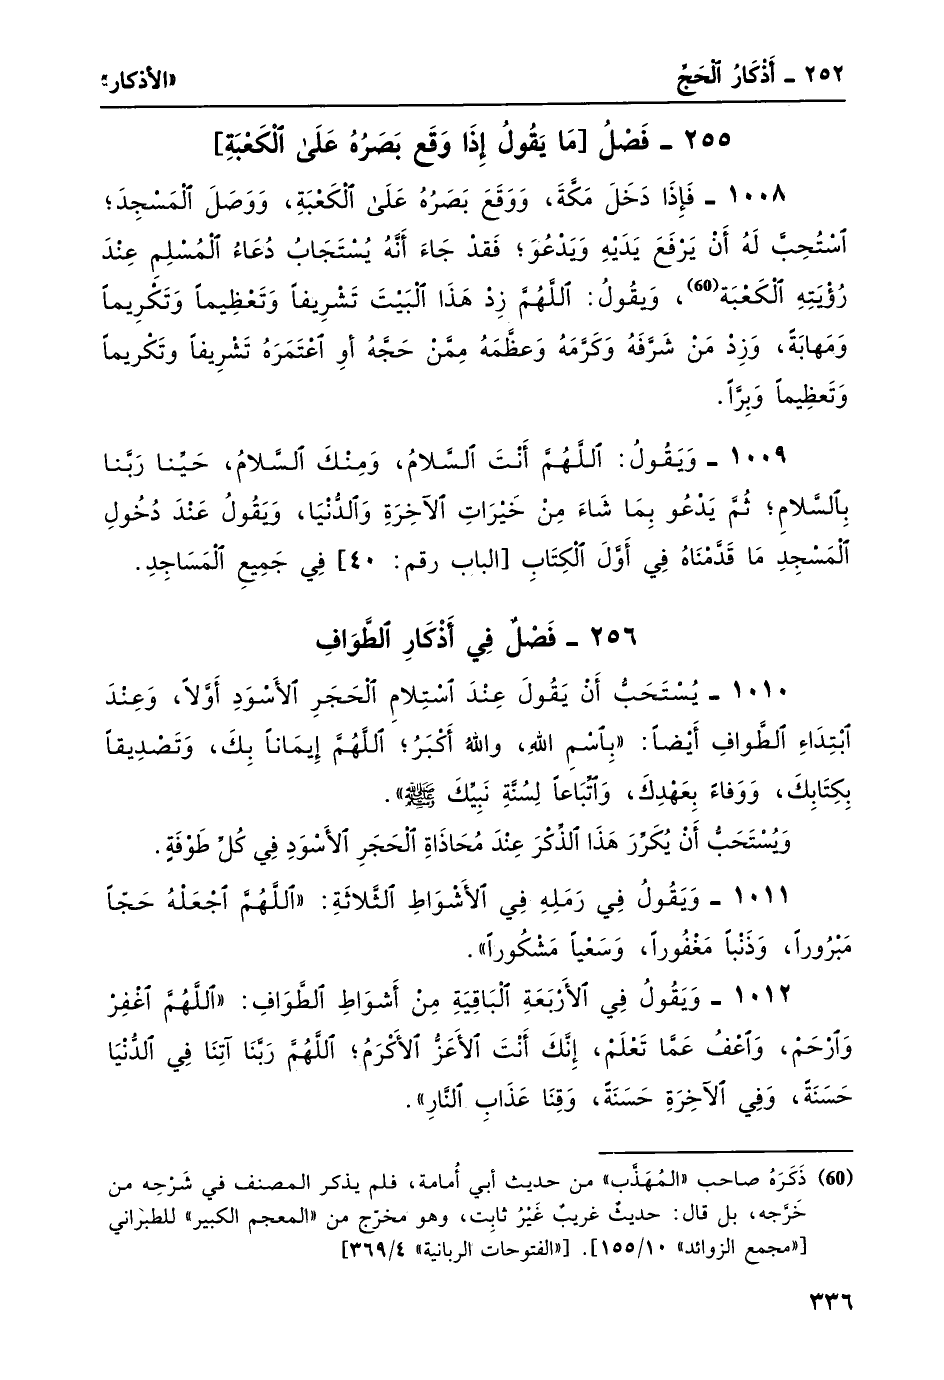 ٢٥٢ ـ أَذْكَارُ ٱلْحَجِّ
«الأذكار»
٢٥٥ ـ فَصْلُ [مَا يَقُولُ إِذَا وَقَع بَصَرُهُ عَلَىٰ ٱلْكَعْبَةِ]
١٠٠٨ ـ فَإِذَا دَخَلَ مَكَّةَ، وَوَقَعَ بَصَرُهُ عَلَىٰ ٱلْكَعْبَةِ، وَوَصَلَ ٱلْمَسْجِدَ؛
ٱسْتُحِبَّ لَهُ أَنْ يَرْفَعَ يَدَيْهِ وَيَدْعُوَ؛ فَقدْ جَاءَ أَنَّهُ يُسْتَجَابُ دُعَاءُ ٱلْمُسْلِمِ عِنْدَ
رُؤْيَتِهِ ٱلْكَعْبَةَ(60)، وَيقُولُ: ٱللَّهُمَّ زِدْ هَذَا ٱلْبَيْتَ تَشْرِيفاً وَتَعْظِيماً وَتَكْرِيماً
وَمَهابَةً، وَزِدْ مَنْ شَرَّفَهُ وَكَرَّمَهُ وَعَظَّمَهُ مِمَّنْ حَجَّهُ أوِ ٱعْتَمَرَهُ تَشْرِيفاً وتَكْرِيماً
وَتَعظِيماً وَبِرَّاً.
١٠٠٩ ـ وَيَقُولُ: ٱللَّهُمَّ أَنْتَ ٱلسَّلامُ، وَمِنْكَ ٱلسَّلامُ، حَيِّنا رَبَّنا
بِٱلسَّلامِ؛ ثُمَّ يَدْعُو بِمَا شَاءَ مِنْ خَيْرَاتِ ٱلآخِرَةِ وَٱلدُّنْيَا، وَيَقُولُ عَنْدَ دُخُولِ
ٱلْمَسْجِدِ مَا قَدَّمْنَاهُ فِي أَوَّلَ ٱلْكِتَابِ [الباب رقم: ٤٠] فِي جَمِيعِ ٱلْمَسَاجِدِ.
٢٥٦ ـ فَصْلٌ فِي أَذْكَارِ ٱلطَّوَافِ
١٠١٠ ـ يُسْتَحَبُّ أَنْ يَقُولَ عِنْدَ ٱسْتِلامِ ٱلْحَجَرِ ٱلأَسْوَدِ أَوَّلاً، وَعِنْدَ
ٱبْتِدَاءِ ٱلطَّوافِ أَيْضاً: «بِٱسْمِ اللهِ، واللهُ أَكْبَرُ؛ ٱللَّهُمَّ إِيمَاناً بِكَ، وَتَصْدِيقاً
بِكِتابِكَ، وَوَفاءً بِعَهْدِكَ، وَٱتِّبَاعاً لِسُنَّةِ نَبِيِّكَ ﷺ».
وَيُسْتَحَبُّ أَنْ يُكَرِّرَ هَذَا ٱلذِّكْرَ عِنْدَ مُحَاذَاةِ ٱلْحَجَرِ ٱلأَسْوَدِ فِي كُلِّ طَوْفَةٍ.
١٠١١ ـ وَيَقُولُ فِي رَمَلِهِ فِي ٱلأَشْوَاطِ ٱلثَّلاثَةِ: «ٱللَّهُمَّ ٱجْعَلْهُ حَجّاً
مَبْرُوراً، وَذَنْباً مَغْفُوراً، وَسَعْياً مَشْكُوراً».
١٠١٢ ـ وَيَقُولُ فِي ٱلأَرْبَعَةِ ٱلْبَاقِيَةِ مِنْ أَشوَاطِ ٱلطَّوَافِ: «ٱللَّهُمَّ ٱغْفِرْ
وَٱرْحَمْ، وَٱعْفُ عَمَّا تَعْلَمْ، إِنَّكَ أَنْتَ ٱلأَعَزُّ ٱلأَكْرَمُ؛ ٱللَّهُمَّ رَبَّنَا آتِنَا فِي ٱلدُّنْيَا
حَسَنَةً، وَفِي ٱلآخِرَةِ حَسَنَةً، وَقِنَا عَذَابِ ٱلنَّارِ».
(60) ذَكَرَهُ صاحب «المُهَذَّب» من حديث أبي أُمامة، فلم يذكر المصنف في شَرْحِه من
خَرَّجه، بل قال: حديثٌ غريبٌ غَيْرُ ثابِت، وهو مخرّج من «المعجم الكبير» للطبراني
[«مجمع الزوائد» ١٥٥/١٠]. [«الفتوحات الربانية» ٣٦٩/٤]
٣٣٦